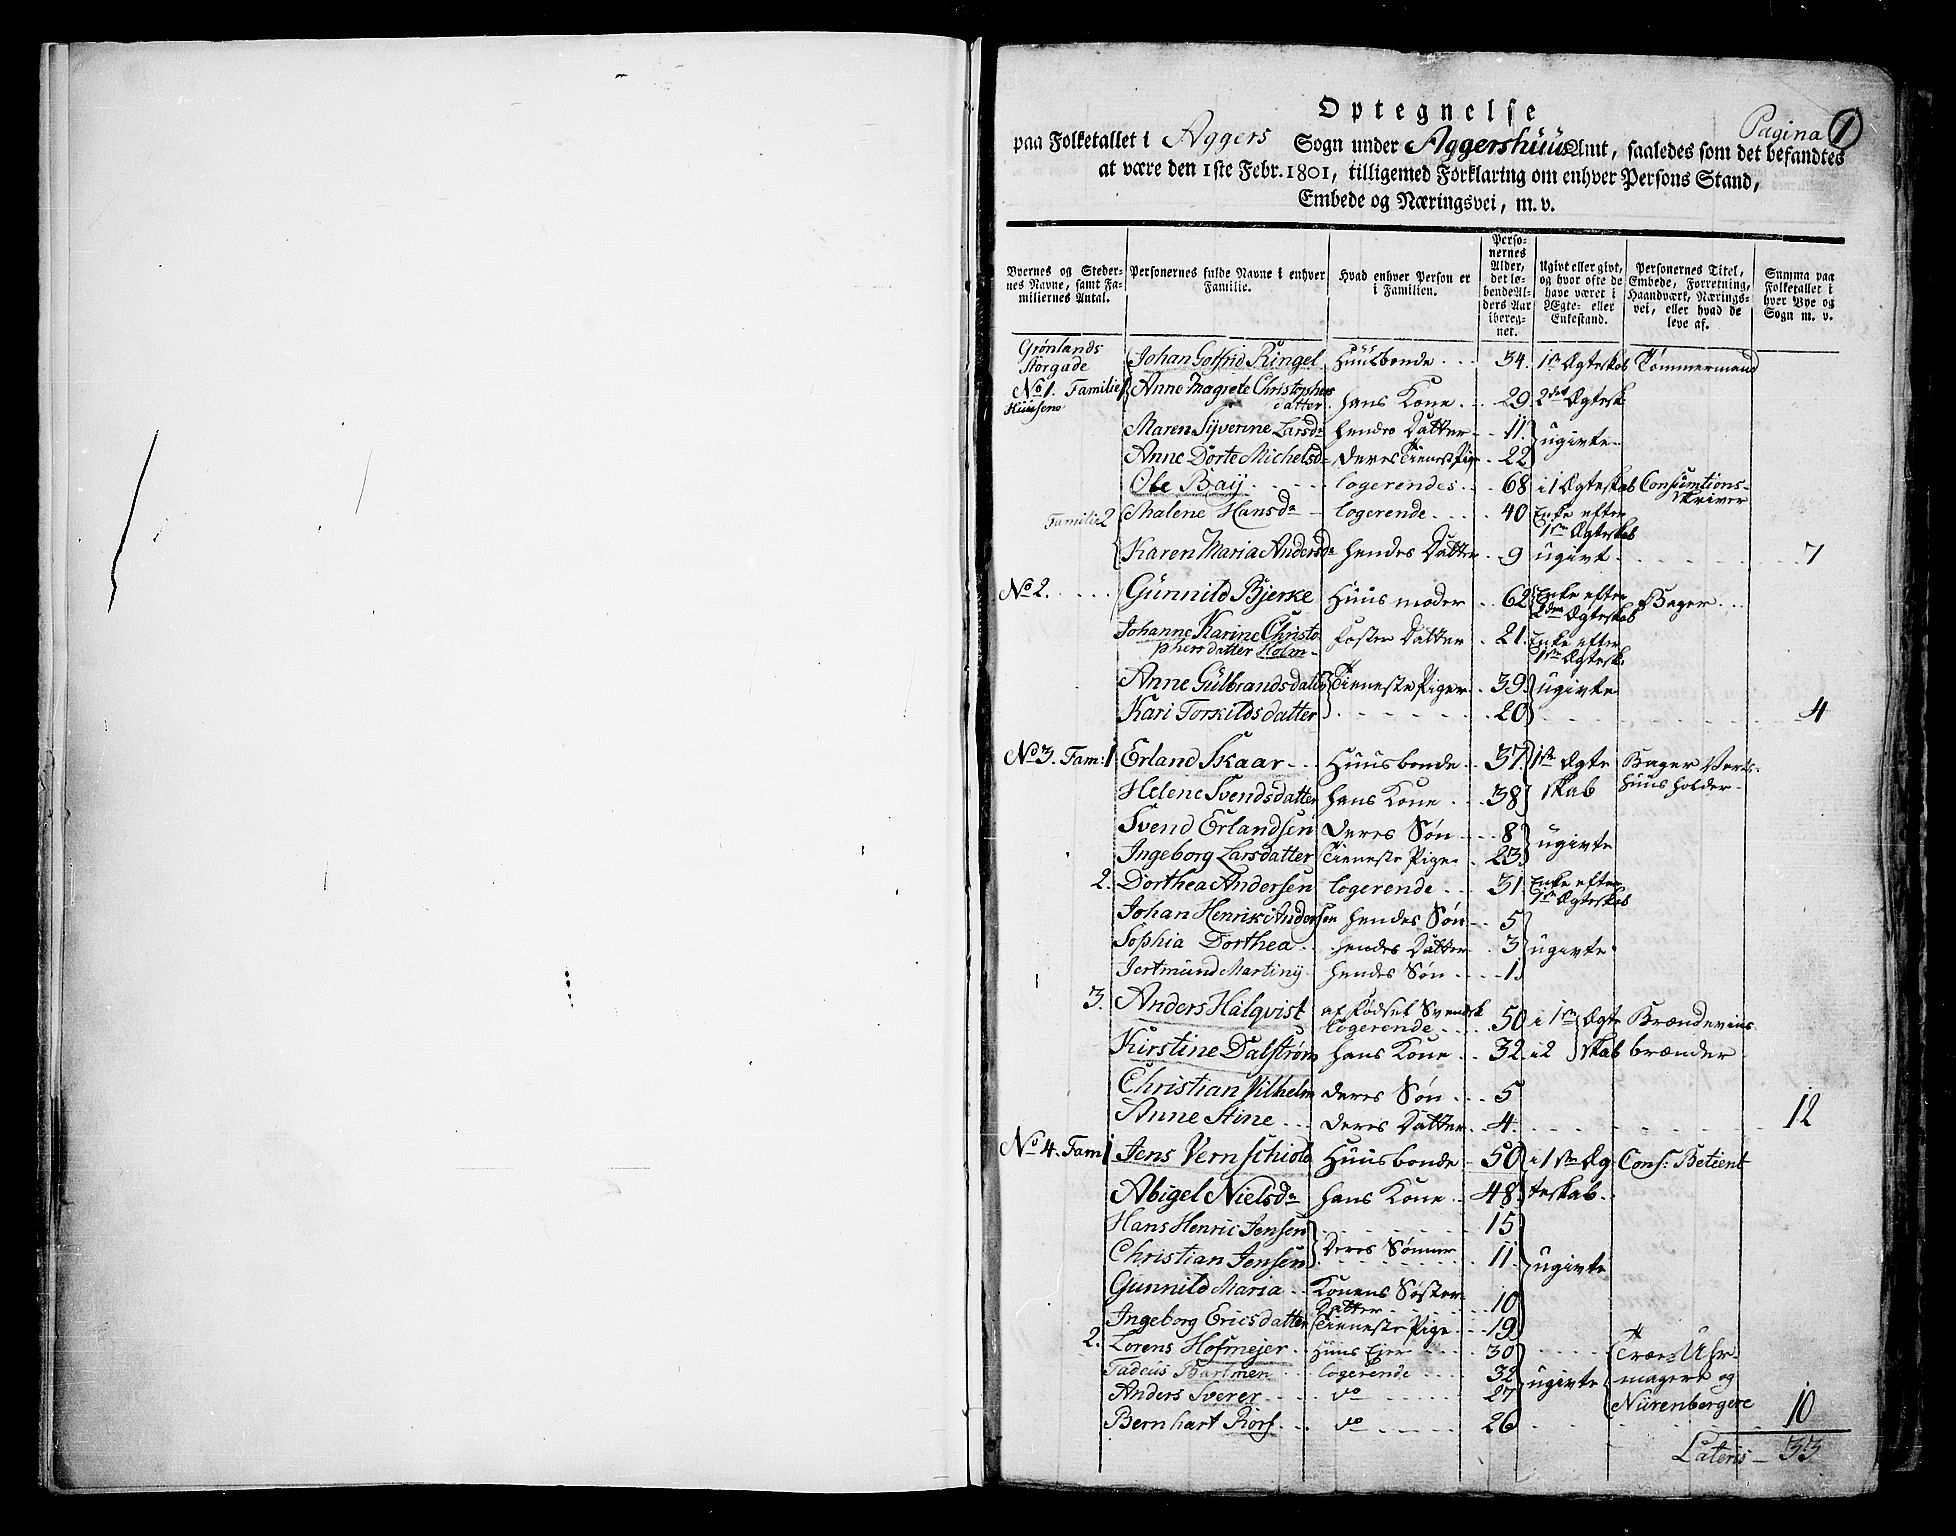 Optegnelse
Pagina 1
paa Folketallet i Aggers Sogn under Aggershuus Amt, saaledes som det befandtes
at være den 1ste Febr. 1801, tilligemed Forklaring om enhver Persons Stand,
Embede og Næringsvei, m. v.
Byernes og Stedernes Navne, samt Familiernes Antal. | Personernes fulde Navne i enhver Familie. | Hvad enhver Person er i Familien. | Personernes Alder, det løbende Alders Aar iberegnet. | Ugivt eller givt, og hvor ofte de have været i Ægte- eller Enkestand. | Personernes Titel, Embede, Forretning, Haandværk, Næringsvei, eller hvad de leve af. | Summa paa Folketallet i hver Bye og Sogn m. v.
Grønlands Storgade Johan Gotfrid Ringel Huusbonde 34. 1ste Ægteskab Tømmermand
No 1. Familie 1 Huusene Anne Magrete Christophersdatter hans Kone 29 2det Ægtesk
Maren Syverine Larsdr hendes Datter 11 ugivte
Anne Dorte Michelsd deres Tieneste Pige 22
Ole Baÿ logerendes 68 i 1 Ægteskab Consumtions-
Skriver
Familie 2 Malene Hansdr logerende 40 Enke efter
1ste Ægteskab
Karen Maria Andersdr hendes Datter 9 ugivt 7
No 2. Gunnild Bjerke Huusmoder 62 Enke efter
2den Ægteskab Bager
Johanne Karine Christo-
phersdatter Holm Foster Datter 21. Enke efter
1ste Ægtesk:
Anne Gulbrandsdatter Tieneste Piger 39 ugivte
Kari Torkildsdatter 20 4
No 3. Fam: 1 Erland Skaar Huusbonde 37 1ste Ægte Bager Verts-
Helene Svendsdatter hans Kone 38 skab huusholder
Svend Erlandsen deres Søn 8 ugivte
Ingeborg Larsdatter Tieneste Pige 23
2. Dorthea Andersen logerende 31. Enke efter
1ste Ægteskab
Johan Henrik Andersen hendes Søn 5
Sophia Dorthea hendes Datter 3 ugivte
Jertmund Martiny hendes Søn 1
3. Anders Halqvist af Fødsel Svensk
logerende 50 i 1ste Ægte Brændeviins
Kirstine Dalstrøm hans Kone 32 i 2 skab brænder
Christian Vilhelm deres Søn 5
Anne Stine deres Datter 4 12
No 4. Fam 1 Jens Vernschiold Huusbonde 50 i 1ste Æg Cons: Betient
Abigel Nielsdr hans Kone 48 teskab
Hans Henric Jensen 15
Christian Jensen Deres Sønner 11 ugivte
Gunnild Maria Konens Søster
Datter 10
Ingeborg Ericsdatter Tieneste Pige 19
2. Lorens Hofmejer Huus Ejer 30 Træe Uhr-
Tadeus Bartmen logerende 32 ugivte magere og
Anders Sverer do 27 Nürenbergere
Bernhart Riors do 26 10
Lateris 33